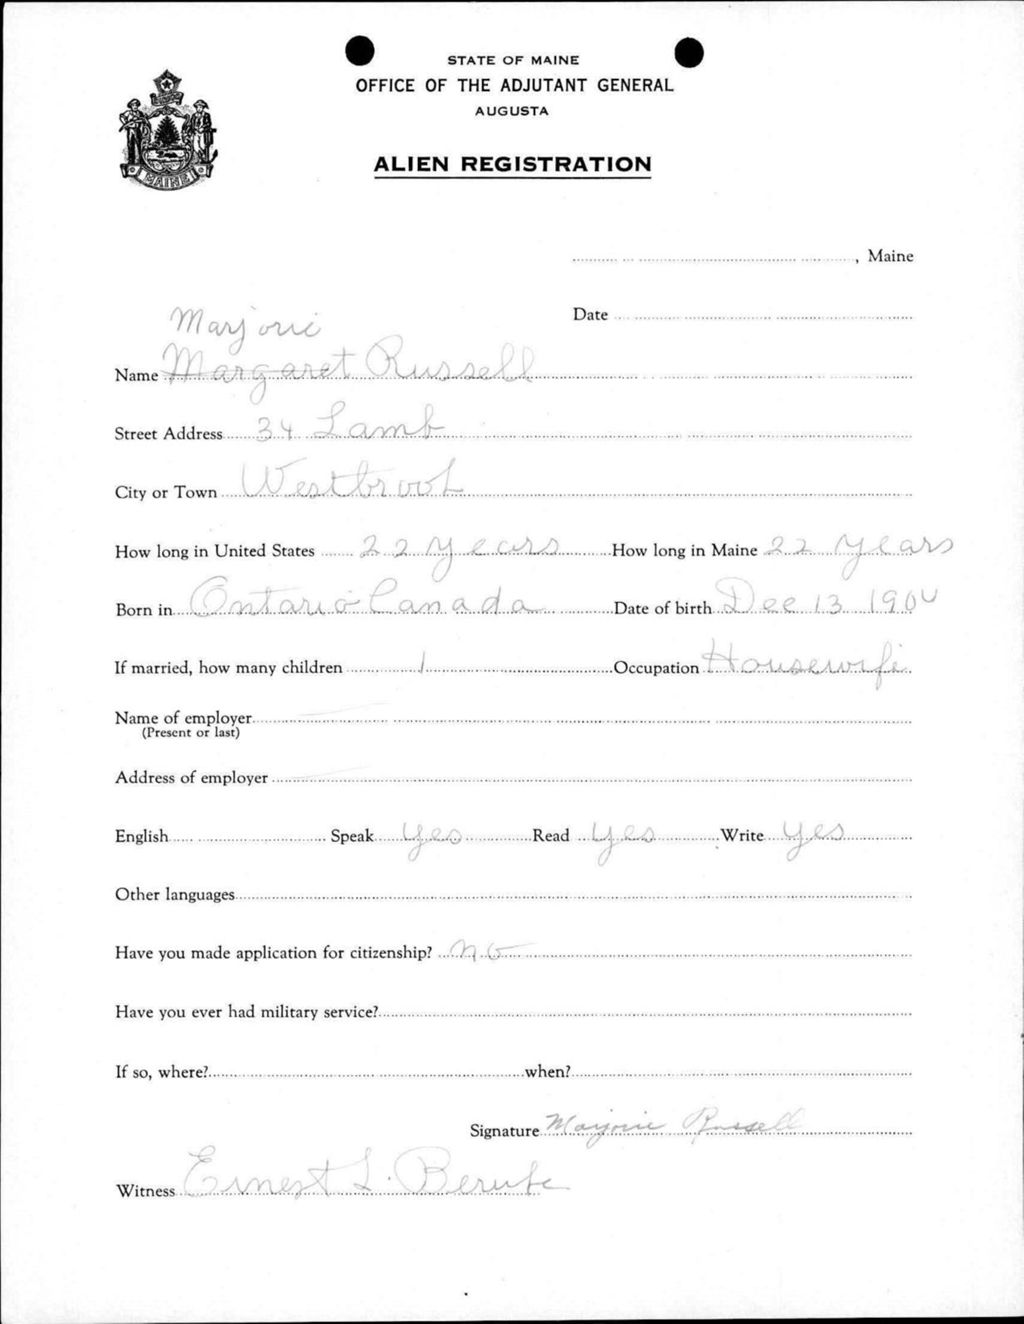 STATE OF MAINE
OFFICE OF THE ADJUTANT GENERAL
AUGUSTA
ALIEN REGISTRATION
MAINE
, Maine
Date
Marjorie
Name Margaret Russell
Street Address 34 Lamb
City or Town Westbrook
How long in United States 22 years How long in Maine 22 years
Born in Ontario Canada Date of birth Dec 13 1904
If married, how many children 1 Occupation Housewife
Name of employer
(Present or last)
Address of employer
English Speak yes Read yes Write yes
Other languages
Have you made application for citizenship? no
Have you ever had military service?
If so, where? when?
Signature Marjorie Russell
Witness Ernest L. Berube